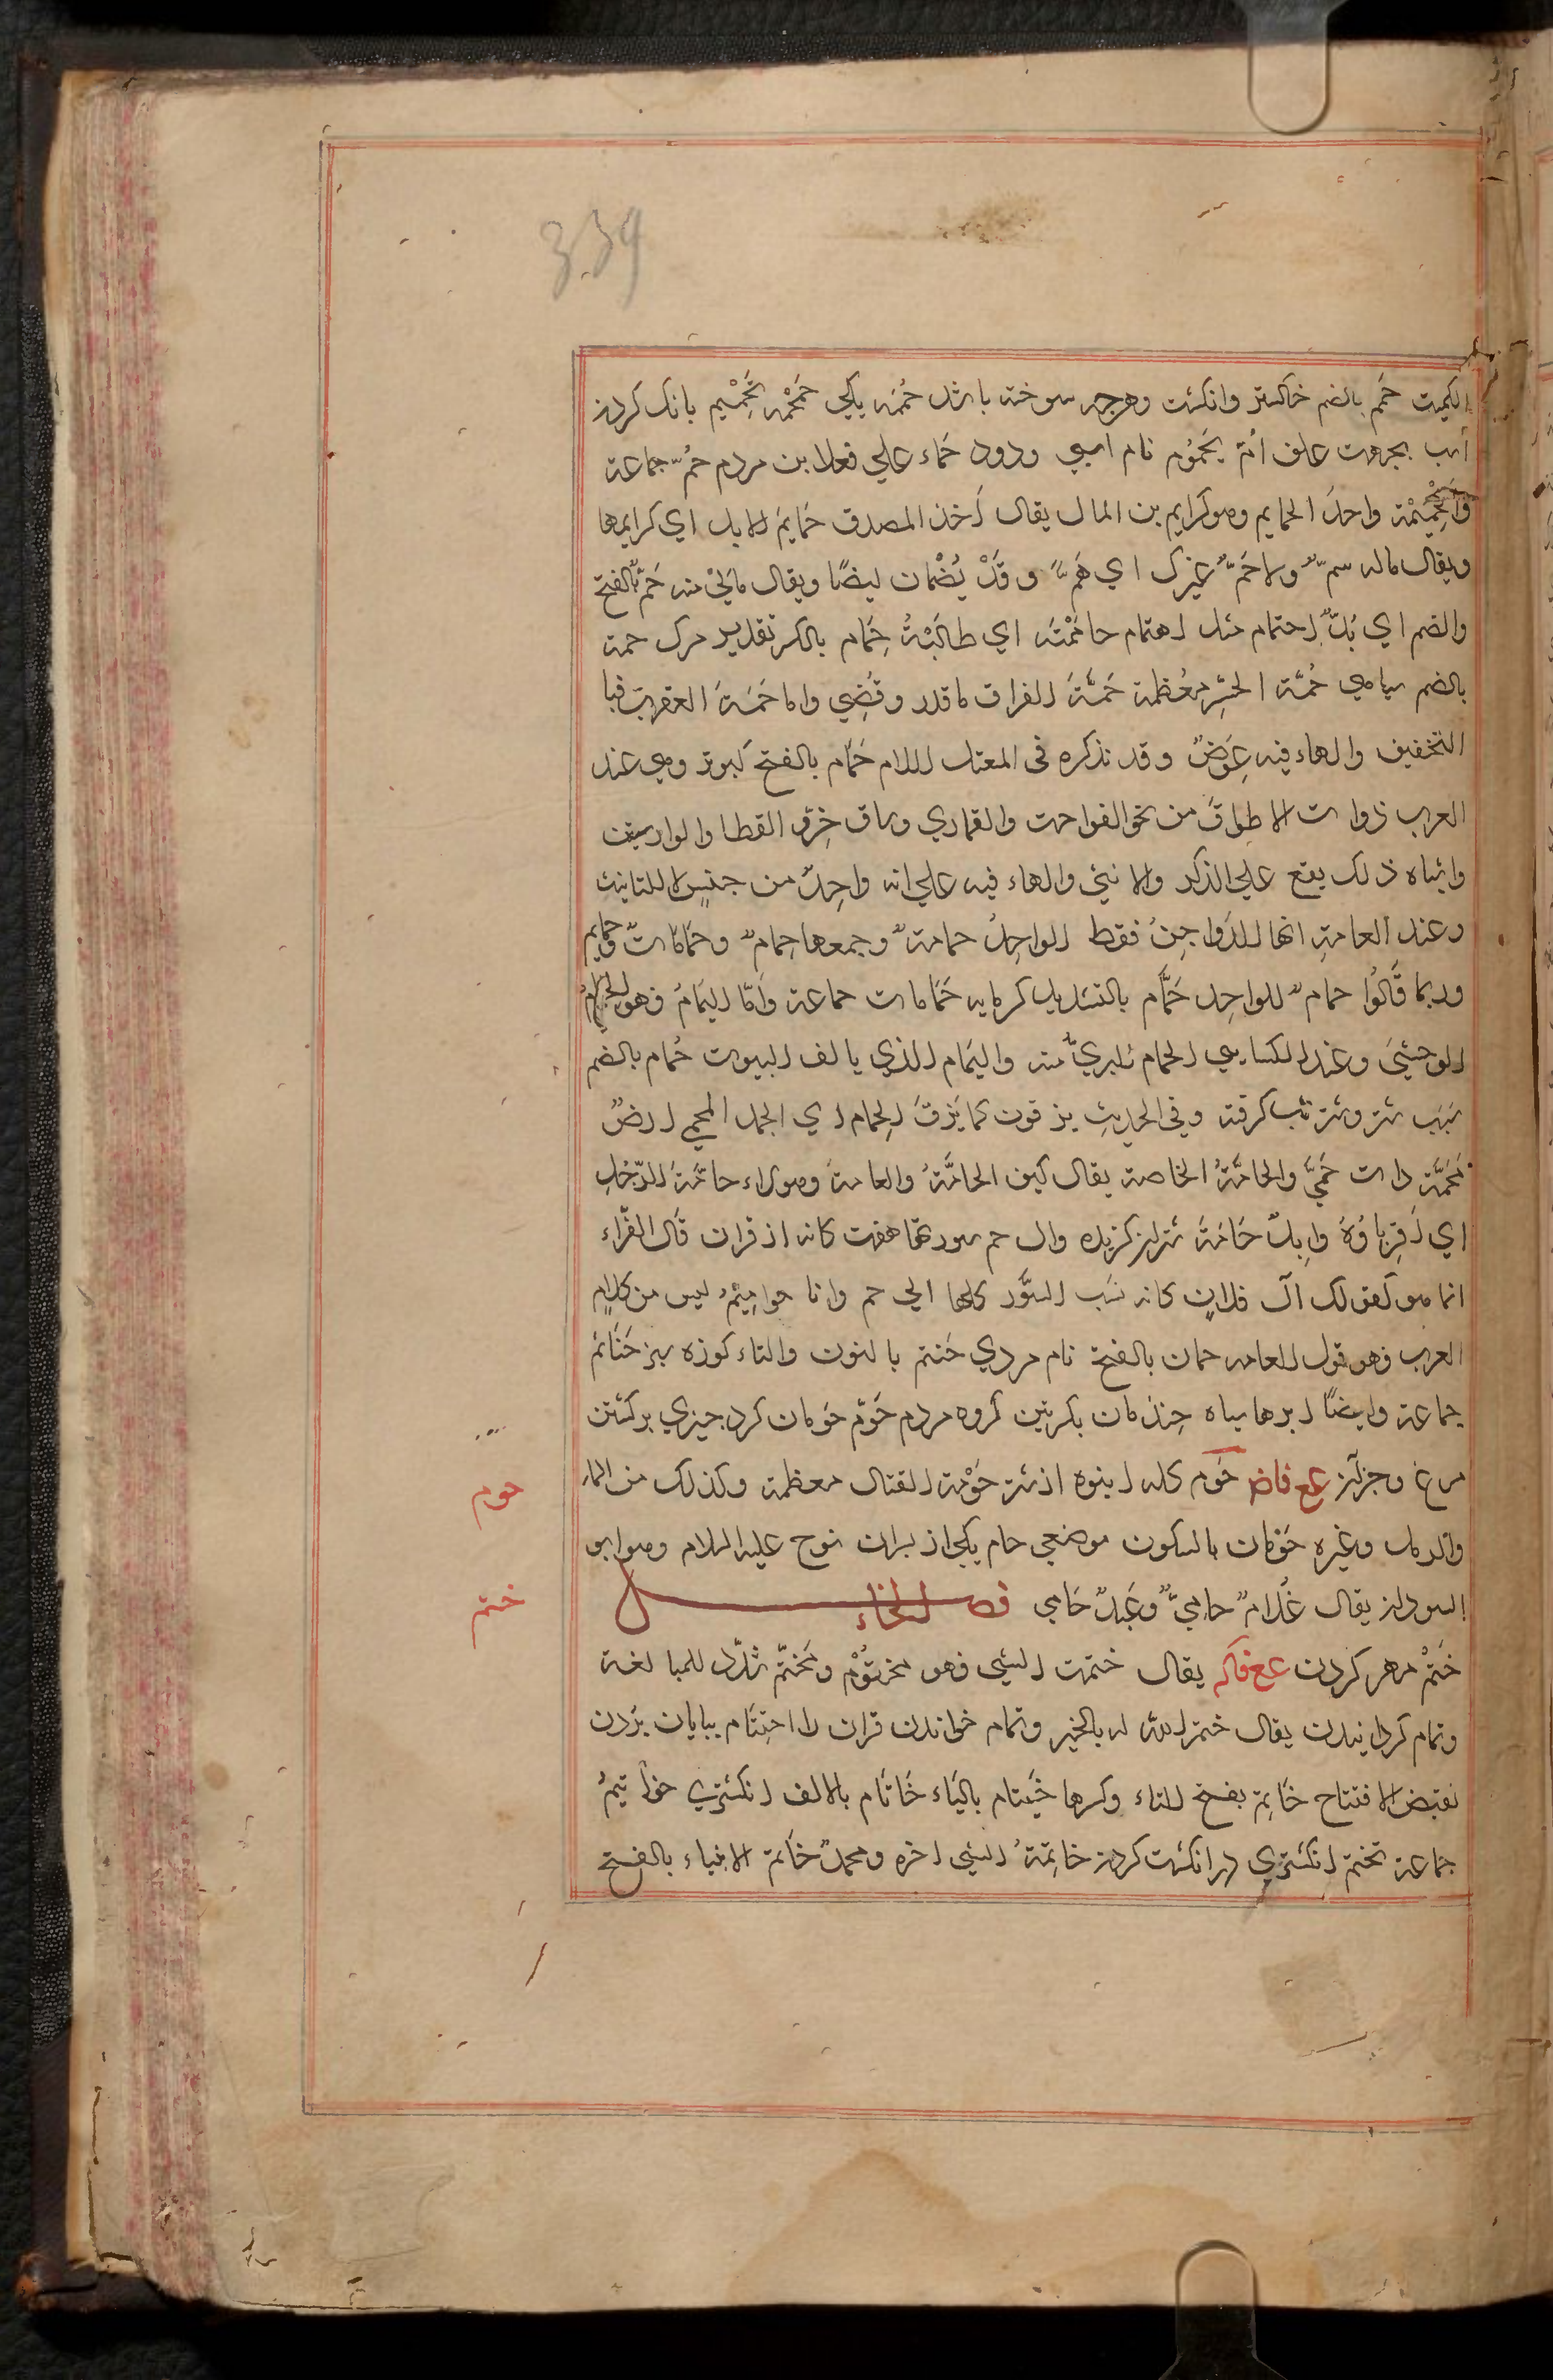 339
الكميت حمم بالضم خاكستر وانكشت وهرچه سوخته باشد حُممه يكي حَمْحَمْه تَحَمْحُم بانك كردن
اسب بجهت علف اتم يَحْمُوم نام اسپي ودود حماء علي فعلا بن مردم حُمّ جماعة
والحَمِيْمْة واحدُ الحمايم وهو كرايم من المال يقال اَخذ المصدق حَمايمَ الابل اي كرايمها
ويقال ماله سمٌّ ولا حَمٌّ غيرك اي هَمٌّ و قَدْ يُضْمان ايضًا ويقال مالي منه حَمّ بالفتح
والضم اي بُدٌّ احتمام مثل اهتمام حامَمْتُه اي طالَبْتُهُ حِمام بالكسر تقدير مرك حمة
بالضم سياهي حُمَّة الحَرِّ مُعْظمة حَمَّةُ الفراق ما قدر وقُضِي واما حُمَةُ العقرب فبا
التخفيف والهاء فيه عِوَضٌ وقد نذكره في المعتل اللام حَمَام بالفتح كبوتر وهي عند
العرب ذوات الاطواقَ من نحو الفواخت والقماري وساق حُرّ و القطا والوارشين
واشباه ذلك يقع علي الذكر والانثي والهاء فيه علي انه واحِدٌ من جنسٍ لا للتانيث
وعند العامةِ انها للدَّوا جِنُ فقط الواحِدُ حمامةٌ وجمعها حِمامٌ وحَمَاماتٌ وحمايم
وربما قَالُوا حمامٌ للواحِد حَمَّام بالتشديد كرمابه حَمَامات جماعة وامّا اليَمَامُ فهو الحَمَامُ
الوحشيَّ وعند الكسايي الحمام البريُّ منه واليَمام الذي يالف البيوت حُمام بالضم
تَبَبِ شتر وشتر تب كرفته وفي الحديثِ يزقون كما يَزقّ الحِمام اي الجمل المحمي ارضٌ
مَحَمَّة ذات حُمَّيً والحَامَّةُ الخاصة يقال كيف الحامَّةُ والعامةُ وهولاء حامَّةُ الرّجُلِ
اي اَقرِباؤُهُ وابِلٌ حَامَةُ شتران كزيده وال حم سورتها هفت كانه از قران قال الفرّاء
انما هو كقولك آل فلانٍ كانه نسَب السُّوَر كلها الي حم وانا حوامِيْمُ ليس من كلامِ
العرب فهو قول العامه حمان بالفتح نام مردي حَنتم بالنون والتاء كوزه سبز حَنَاتم
جماعة وايضًا ابرها سياه حِنذمان بكسرتين كروه مردم حَوْم حومان كرد چيزي بركشتن
مرغ وجزآن عع فاض حَوم كله انبوه از شتر حَوْمة القتال معظمة وكذلك من الماءِ
والرمل وغيره حَوْمان بالسكون موضعي حام يكي از پسران نوح عليه السلام وهو ابو
السودان يقال غُلامٌ حامِيٌّ وعَبدٌ حَامي فصل الخاء
خَتمْ مهر كردن عع فاكم يقال ختمت الشي فهو مختوُم ومُخَتَّم شدّد للمبالغة
وتمام كردانيدن يقال ختم الله له بالخير وتمام خواندن قران را اختِتَام بپايان بُردن
نقيض الافتتاح خاتِم بفتح التاء وكسرها خَيْتام بالياء خَاتَام بالالف انكشتري خوا تيمُ
جماعة تختم انكشتري در انكشت كردن خاتِمَةُ الشي اخره ومحمدٌ خَاتم الانبياء بالفتح
حوم
ختم